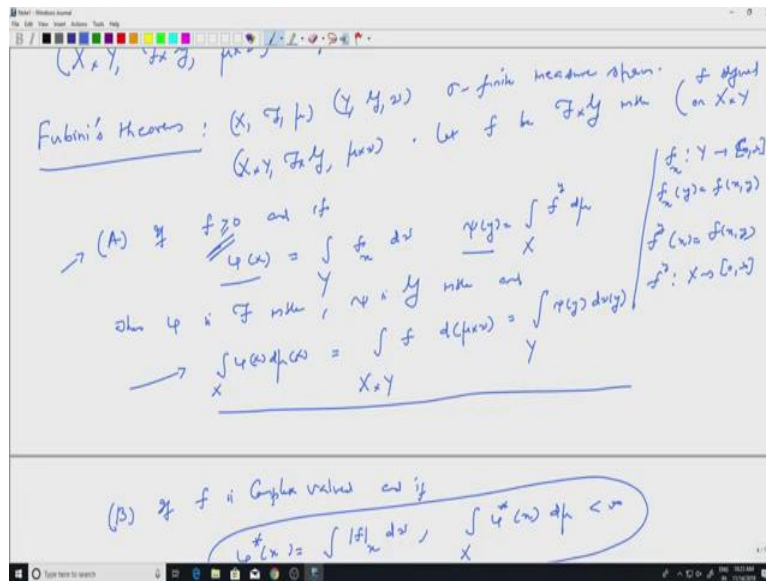 Note1 - Windows Journal
File Edit View Insert Actions Tools Help
(X × Y, F × Y, μ×ν)
Fubini's theorem : (X, F, μ) (Y, Y, ν) σ-finite measure spaces.
(X×Y, F×Y, μ×ν) . Let f be F×Y mble ( f defined on X×Y
f_x : Y →
f_x (y) = f(x,y)
f^y (x) = f(x,y)
f^y : X →
→ (A) If f ≥ 0 and if
φ(x) = ∫_Y f_x dν ψ(y) = ∫_X f^y dμ
then φ is F mble, ψ is Y mble and
→ ∫_X φ(x) dμ(x) = ∫_{X×Y} f d(μ×ν) = ∫_Y ψ(y) dν(y)
(B) If f is Complex valued and if
φ*(x) = ∫ |f|_x dν , ∫_X φ*(x) dμ < ∞
Type here to search